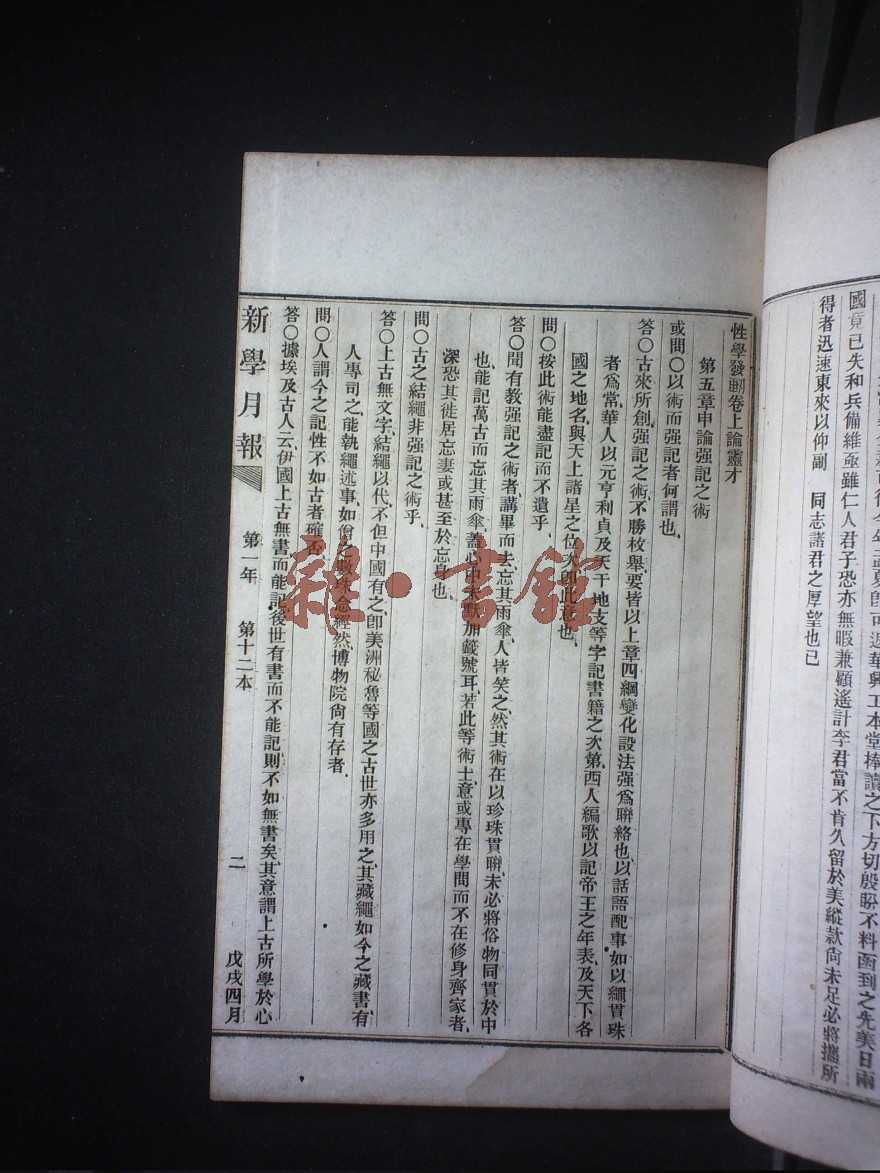 國竟已失和兵備維亟雖仁人君子恐亦無暇兼顧遙計李君當不肯久留於美縱款尙未足必將攜所
得者迅速東來以仰副　同志諸君之厚望也已
性學發軔卷上論靈才
第五章申論强記之術
或問〇以術而强記者何謂也、
答〇古來所創强記之術、不勝枚舉、要皆以上章四綱變化設法强爲聯絡也、以話語配事、如以繩貫珠
者爲常、華人以元亨利貞及天干地支等字記書籍之次第、西人編歌以記帝王之年表、及天下各
國之地名、與天上諸星之位、亦卽此意也、
問〇按此術能盡記而不遺乎、
答〇聞有教强記之術者、講畢而去、忘其雨傘、人皆笑之、然其術在以珍珠貫聯、未必將俗物同貫於中
也、能記萬古而忘其雨傘、蓋心中未默加籤號耳、若此等術士、意或專在學問而不在修身齊家者、
深恐其徙居忘妻或甚至於忘身也、
問〇古之結繩非强記之術乎、
答〇上古無文字、結繩以代、不但中國有之、卽美洲秘魯等國之古世亦多用之、其藏繩如今之藏書、有
人專司之、能執繩述事、如僧之數珠念經然、博物院尙有存者、
問〇人謂今之記性不如古者確否、
答〇據埃及古人云、伊國上古無書而能記、後世有書而不能記、則不如無書矣、其意謂上古所學於心
新學月報
第一年　第十二本
二
戊戌四月
雜·書館